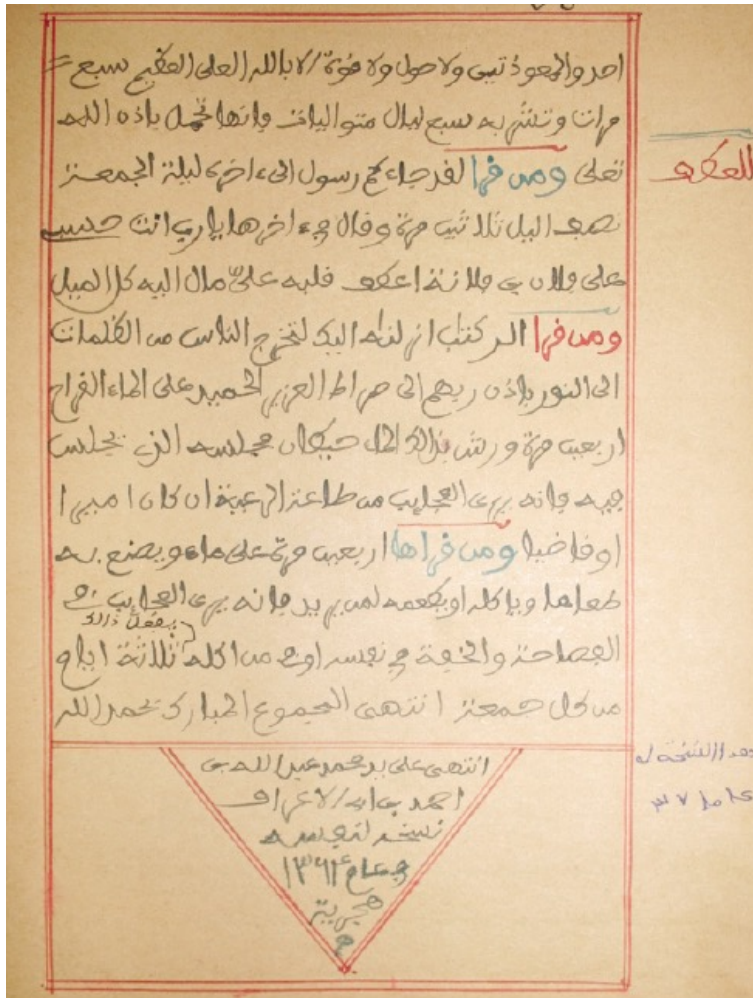 احد والمعوذتين ولا حول ولا قوة الا بالله العلي العظيم سبع
مرات وتشربه سبع ليال متواليات فانها تحمل باذن الله
تعلى ومن قرا لقد جاءكم رسول الىء اخره ليلة الجمعة
للعطف
نصف اليل ثلاثين مرة وقال في ءاخرها يا رب انت حسبي
على فلان بن فلانة اعطف قلبه علي مال اليه كل الميل
ومن قرا الر كتاب انزلنه اليك لتخرج الناس من الظلمات
الى النور باذن ربهم الى صراط العزيز الحميد على الماء القراح
اربعين مرة ورش بذالك الماء حيطان مجلسه الذي يجلس
فيه فانه يرى العجايب من طاعة الرعية ان كان اميرا
او قاضيا ومن قراها اربعين مرة على ماء ويصنع به
طعاما وياكله او يطعمه لمن يريد فانه يرى العجايب في
يفعل ذالك
الفصاحة والخفة في نفسه او في من اكله ثلاثة ايام
من كل جمعة انتهى المجموع المبارك بحمد الله
انتهى على يد محمد عبد الله بن
احمد بن
نسخه لنفسه
في عام ١٣٦٤
هجرية
عام ٣٧